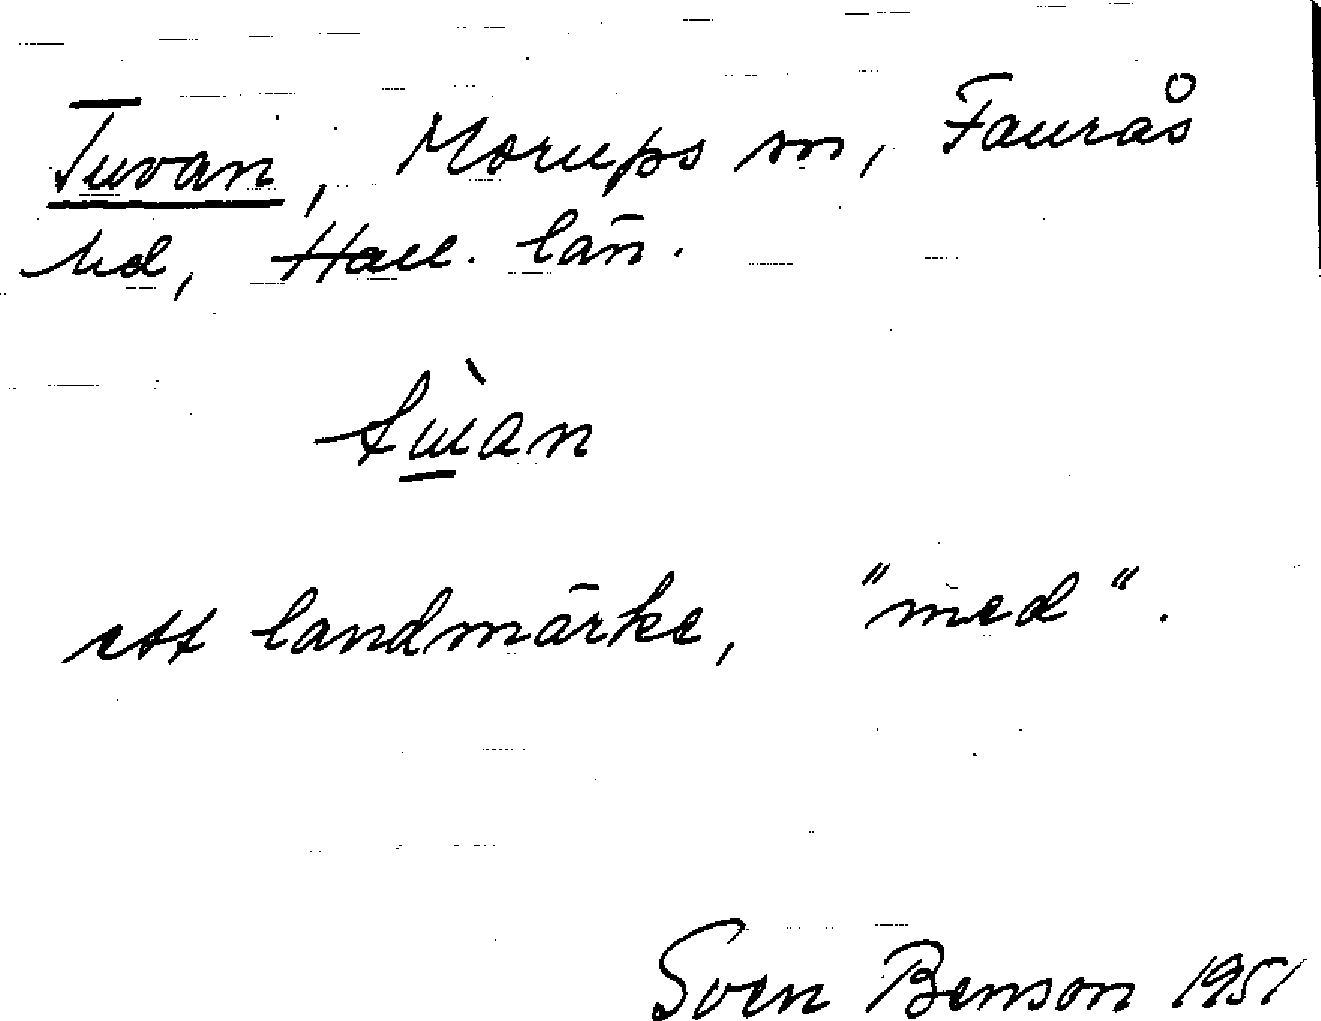 Tuvan, Morups sn, Faurås
hd, Hall. län.
tùan
ett landmärke, "med".
Sven Benson 1951